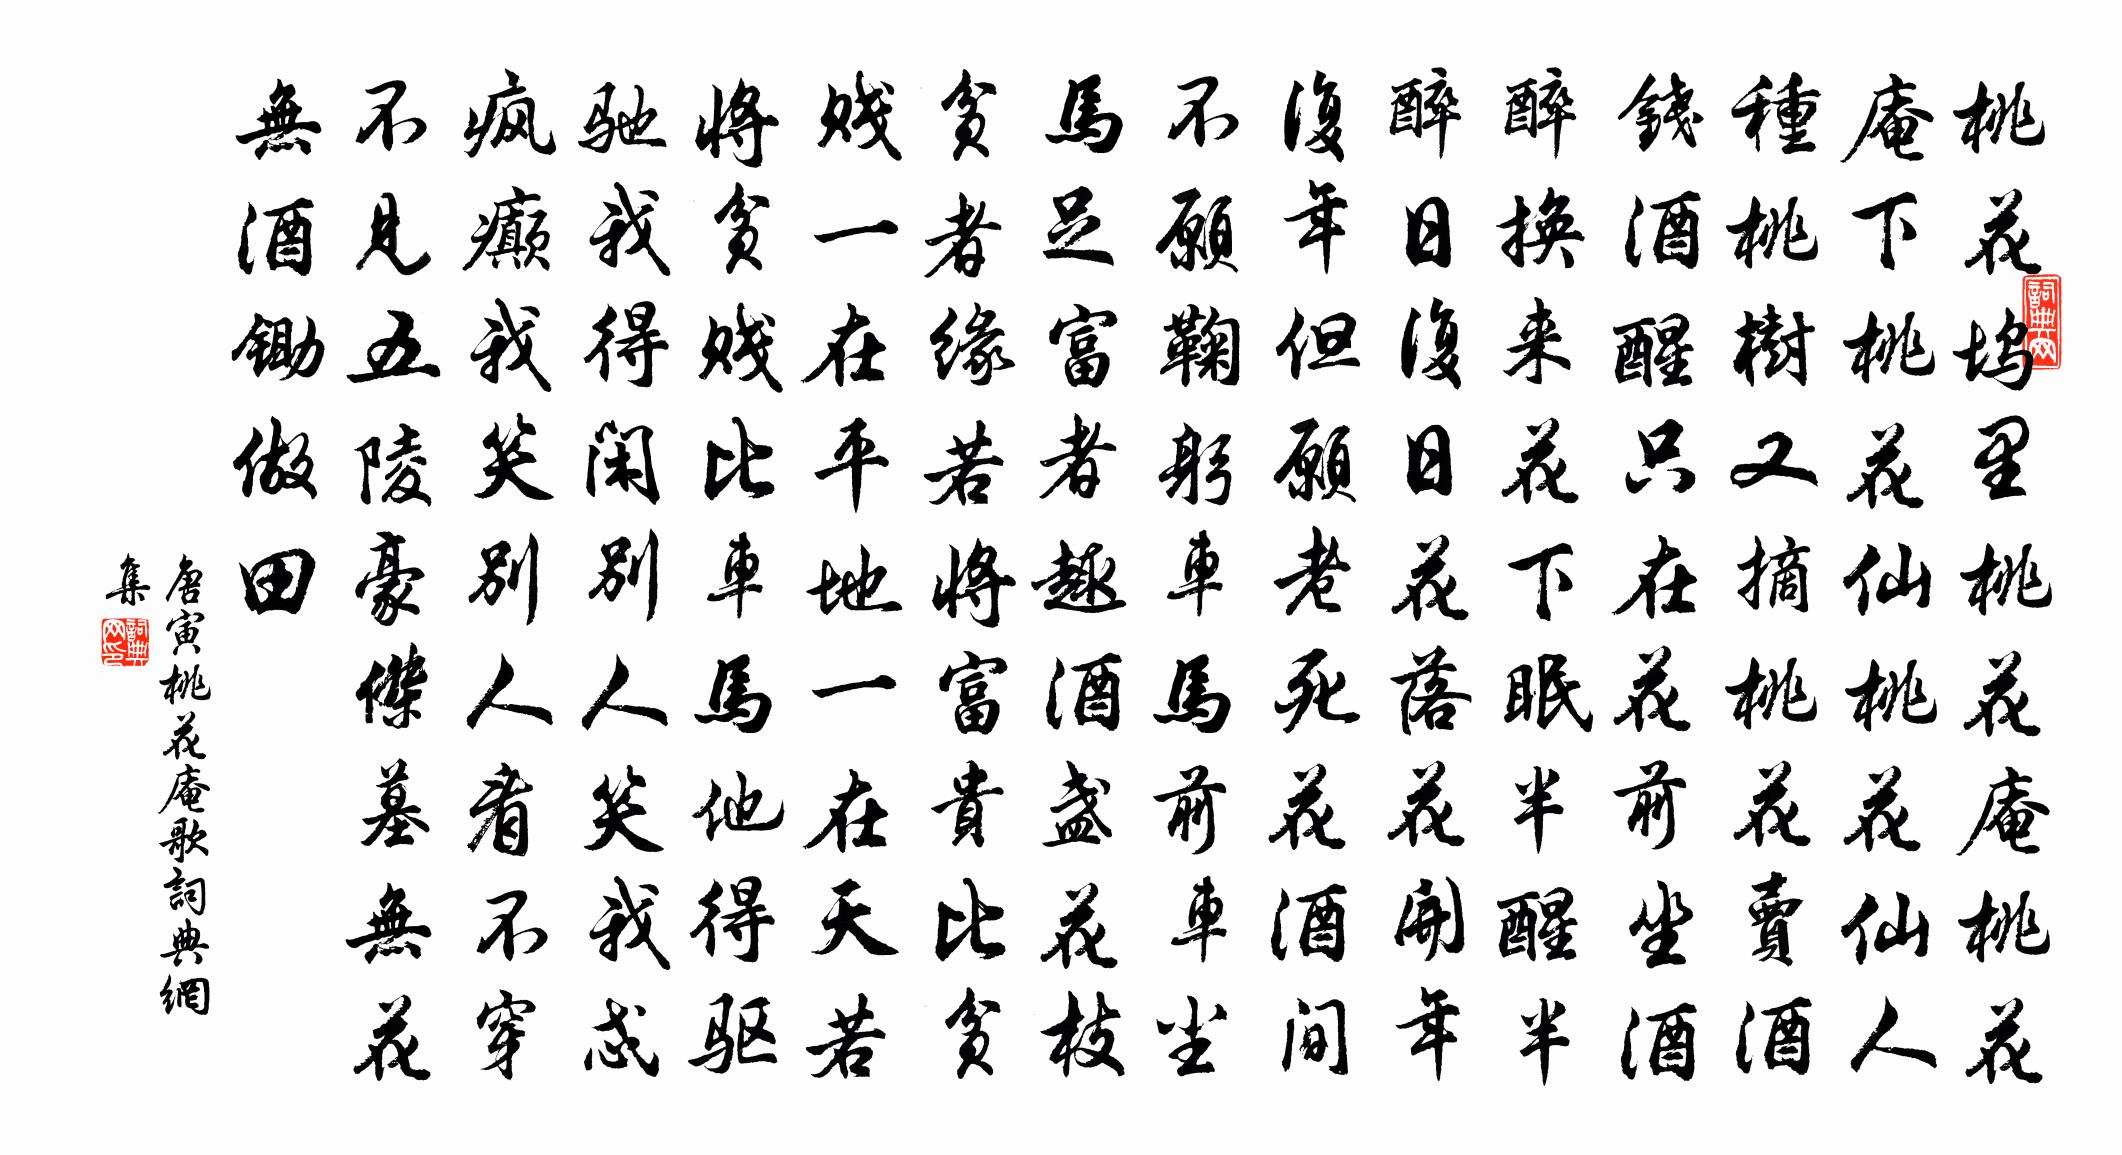 桃花坞里桃花庵桃花
庵下桃花仙桃花仙人
種桃樹又摘桃花賣酒
錢酒醒只在花前坐酒
醉換来花下眠半醒半
醉日復日花落花開年
復年但願老死花酒間
不願鞠躬車馬前車尘
馬足富者趣酒盏花枝
貧者缘若將富貴比貧
贱一在平地一在天若
將貧贱比車馬他得驱
驰我得闲别人笑我忒
疯癲我笑别人看不穿
不見五陵豪傑墓無花
無酒锄做田
唐寅桃花庵歌詞典網
集
詞典网
詞典网印